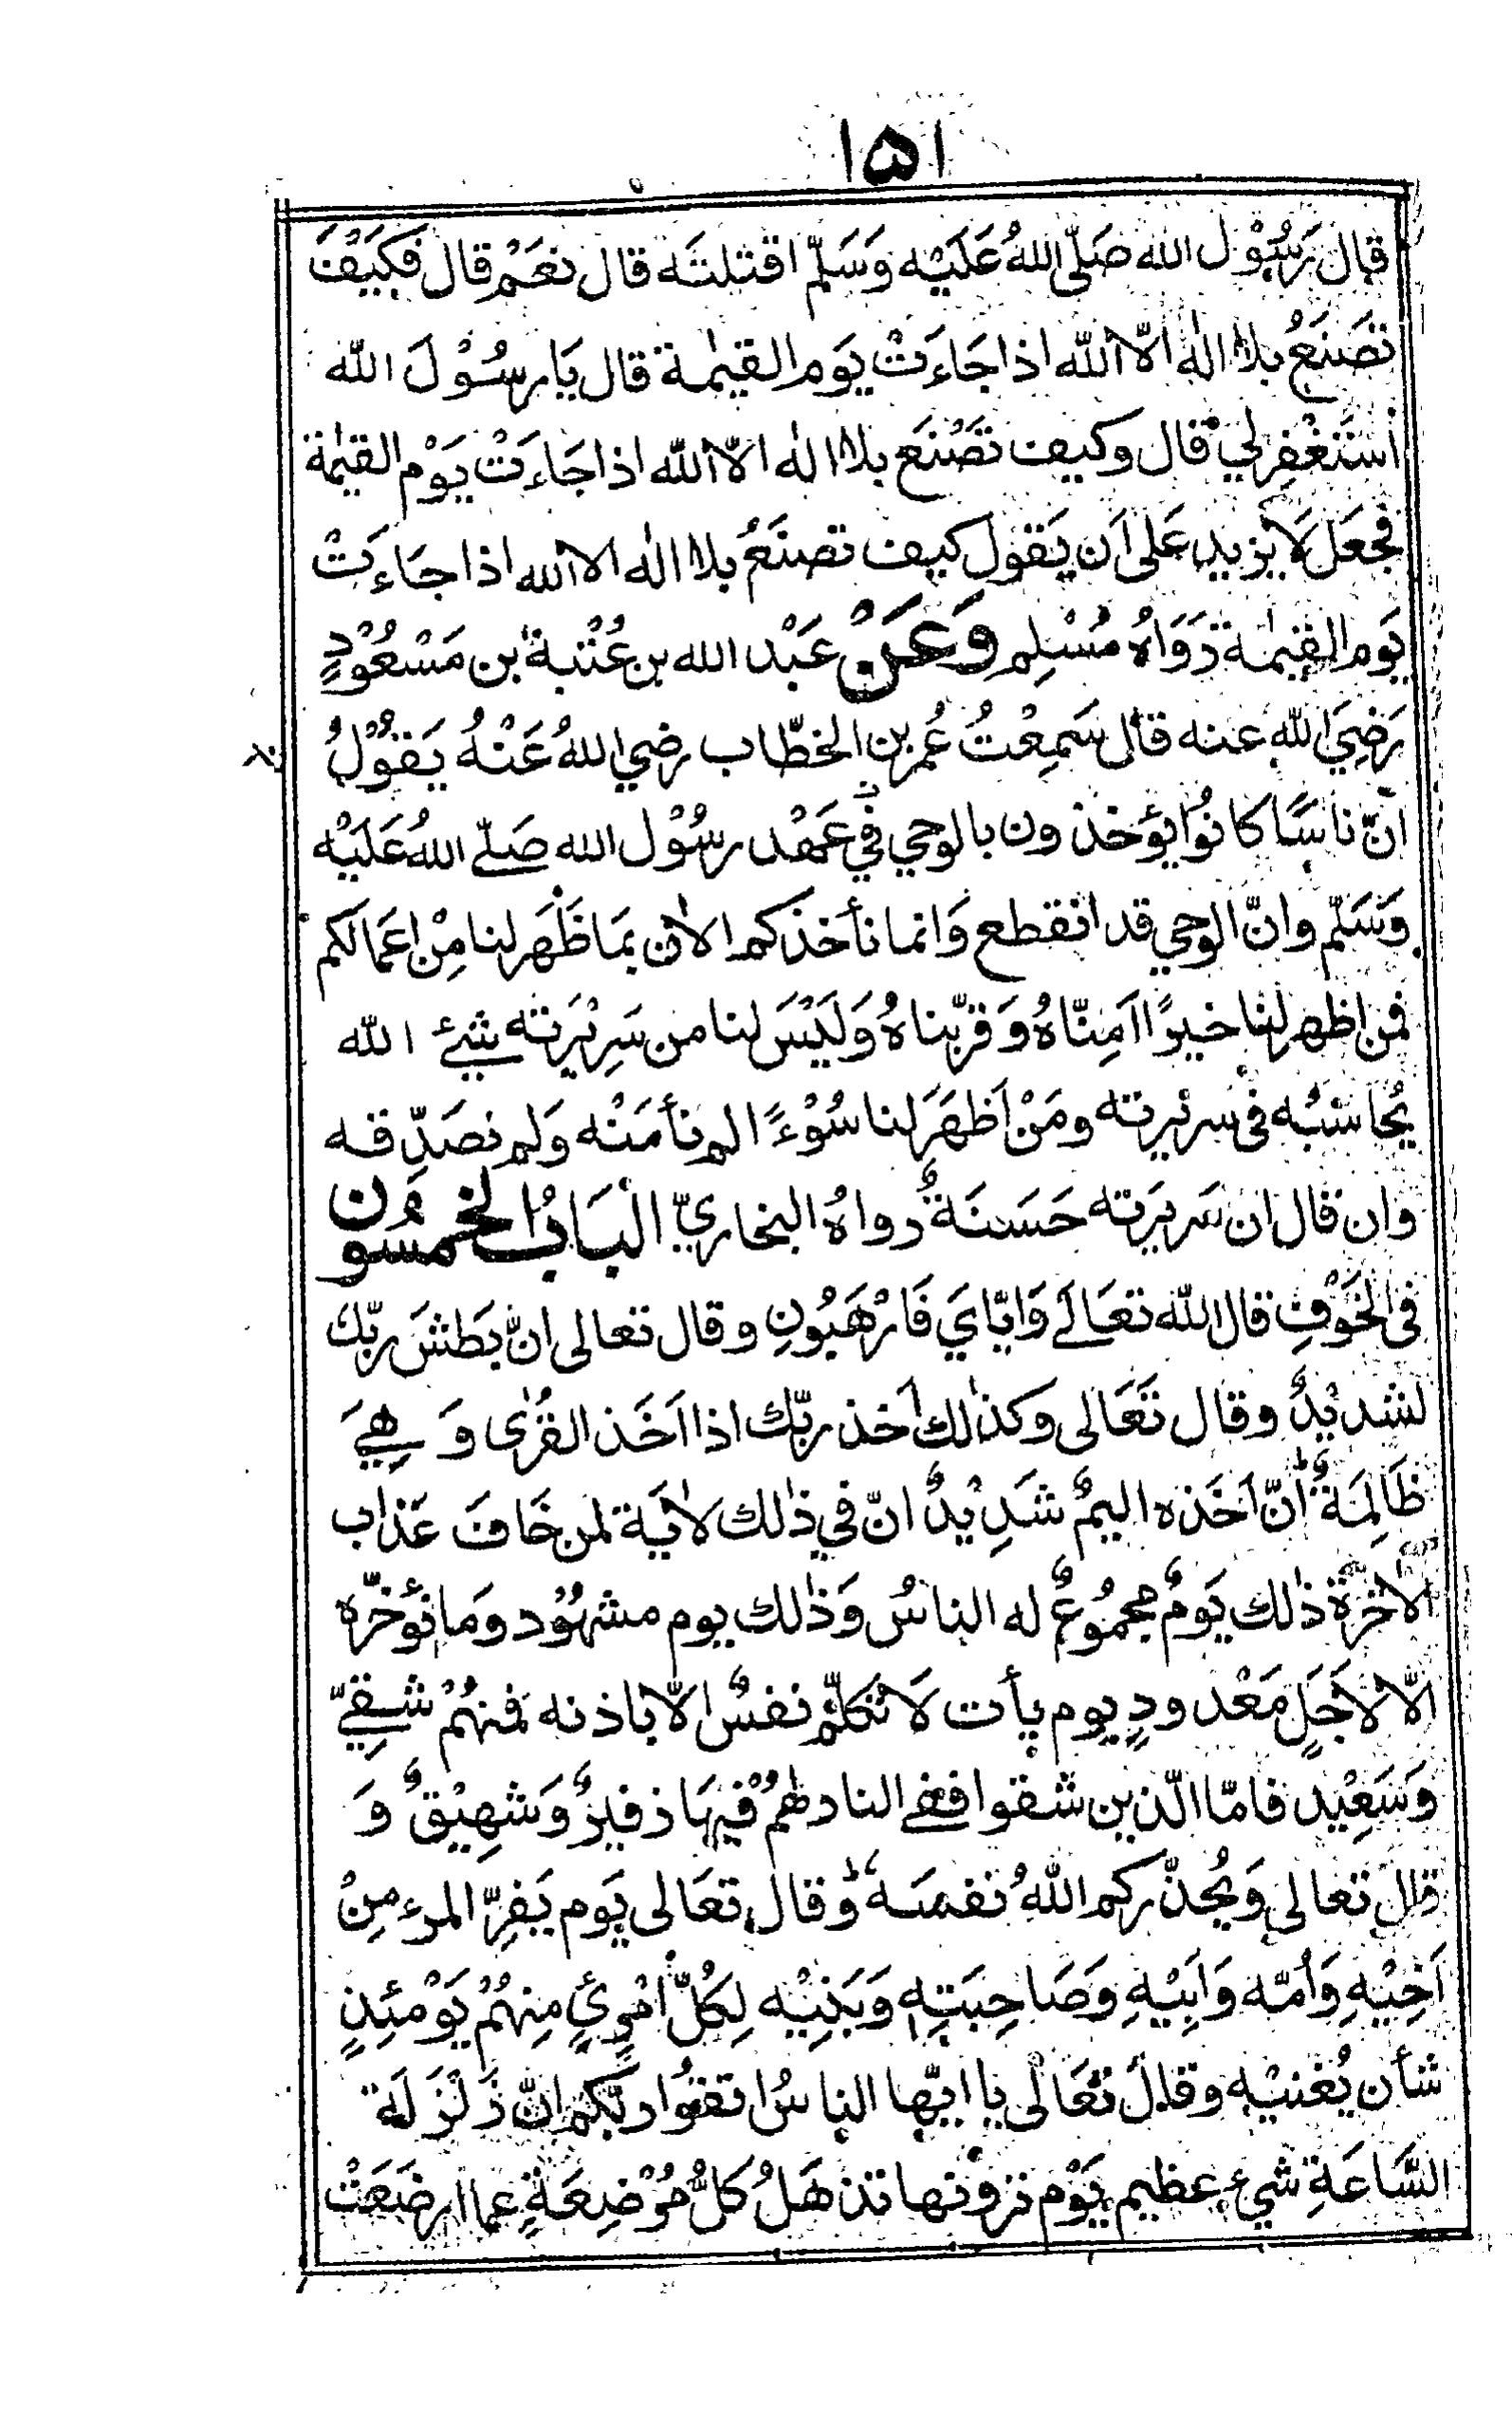 ١٥١
قال رَسُوْل الله صَلّى اللهُ عَلَيْه وَسَلّم اقتلتَه قال نعَمْ قال فكَيْفَ
تصَنَعُ بلا اله الّا الله اذا جَاءَتْ يَوم القيٰمة قال يَا رسُوْلَ الله
اسْتَغْفِر لي قال وكيف تصْنَع بلا اله الّا الله اذا جَاءَتْ يَوْم القيٰمة
فجعَل لَا يزيد عَلى اَن يَقول كيف تصنَعُ بلا اله الا الله اذا جَاءَتْ
يَوم القيٰمة رَوَاهُ مُسْلِم وَعَنْ عَبْد الله بن عُتْبة بن مَسْعُوْدٍ
رَضِيَ اللهُ عنه قال سَمِعْتُ عُمر بن الخطّاب رضي اللهُ عَنْهُ يَقُوْلُ
انّ ناسًا كانُوا يؤخذون بالوحي في عَهْد رسُوْل الله صَلّے اللهُ عَلَيْه
وَسَلّم وانّ الوحي قد انقطع وَانما نأخذكم الاٰن بمَا ظَهَر لنا مِنْ اعمَالكم
فمن اظهر لنا خيرًا اَمِنّاهُ وَقرّبناهُ وَلَيْسَ لنا من سَرِيْرَته شيئ الله
يُحاسبُه في سرئيرته ومَنْ اَظهَرَ لنا سُوْءًا لم نأمَنْه وَلم نصَدّقه
وان قال ان سَريرَته حَسَنَةٌ رواهُ البخاريّ البَابُ الخمسُون
في الخَوْفِ قال الله تعَالےَ وَايّايَ فَارْهَبُونِ وقال تعالى انَّ بَطشَ ربّك
لشديْدٌ وقال تعَالى وكذٰلك اَخذ ربّك اذا اَخَذ القُرٰى وَهِيَ
ظَالِمَةٌ انّ اَخَذه اليمٌ شَدِيْدٌ انّ في ذٰلك لاٰيَة لمن خَافَ عَذاب
الاٰخرَة ذٰلك يَومٌ مجمُوعٌ له الناسُ وَذٰلك يوم مشهُوْد ومَا نؤخّره
الّا لاجَلٍ مَعْدودٍ يوم يأت لَا تكلّم نفسٌ الّا باذنه فمنهُمْ شقِيّ
وَسَعِيْد فامّا الّذين شقوا ففي النار لهُمْ فيهَا زفيرٌ وَشهِيْقٌ وَ
قال تعالى وَيُحذّركم اللهُ نفسَه وقال تعَالى يَوم يَفِرّ المرء مِنْ
اَخِيْهِ وَاُمّه وَاَبِيْهِ وَصَاحِبَتِهٖ وَبَنِيْه لِكُلّ امْرِئٍ مِنهُمْ يَوْمئِذٍ
شأن يُغْنيْه وقال تعَالٰى يا ايّها الناسُ اتقُوا ربّكم اِنّ زَلْزَلَة
السَّاعَةِ شيء عظيم يَوْم ترَوْنها تذهَلُ كلُّ مُرْضِعَةٍ عما ارضَعَتْ